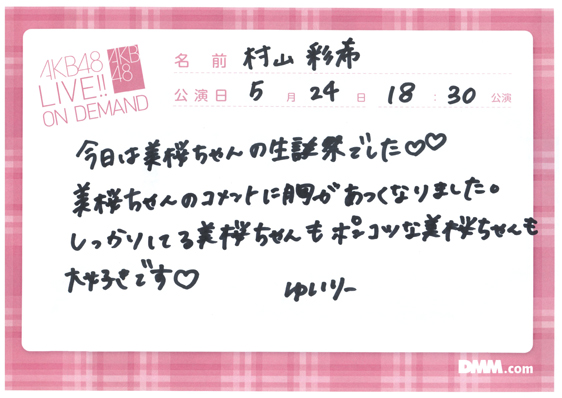 AKB48
LIVE!!
ON DEMAND
AKB
48
名前 村山 彩希
公演日 5月24日 18:30公演
今日は美桜ちゃんの生誕祭でした♡♡
美桜ちゃんのコメントに胸があつくなりました。
しっかりしてる美桜ちゃんもポンコツな美桜ちゃんも
大好きです♡
ゆいりー
DMM.com